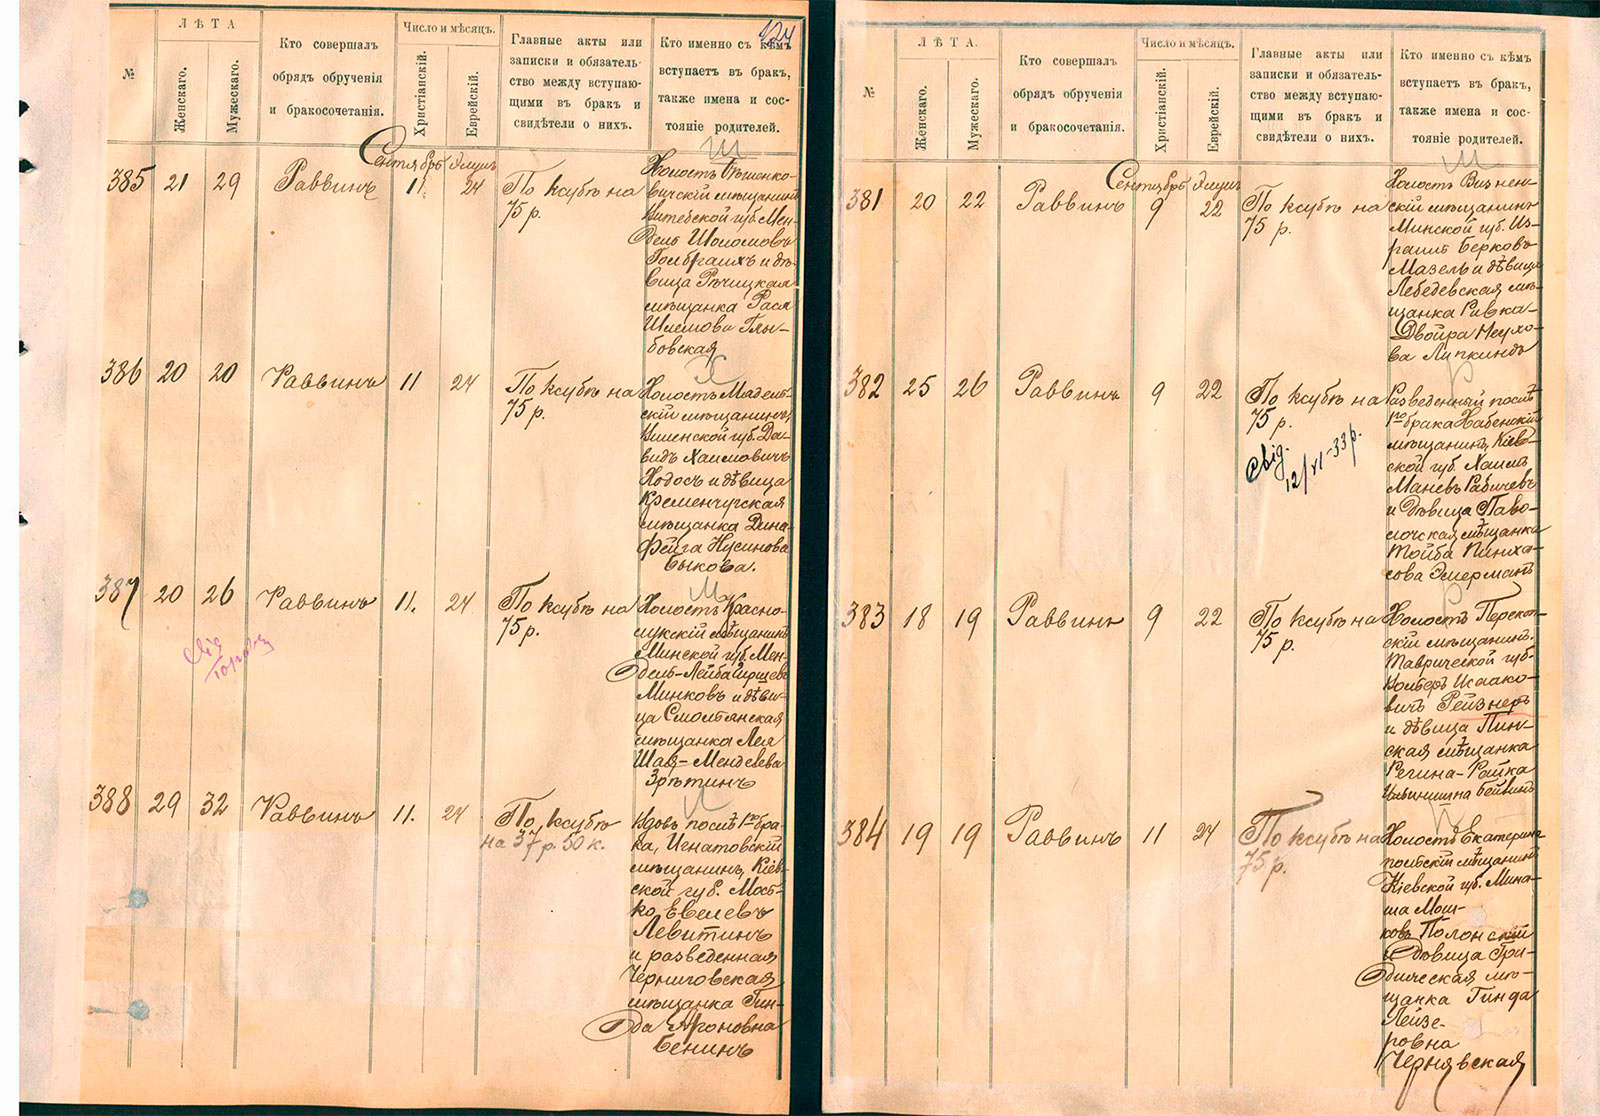 124
№
ЛѢТА
Женскаго.
Мужескаго.
Кто совершалъ
обрядъ обрученія
и бракосочетанія.
Число и мѣсяцъ.
Христіанскій.
Еврейскій.
Главные акты или
записки и обязатель-
ство между вступаю-
щими въ бракъ и
свидѣтели о нихъ.
Кто именно съ кѣмъ
вступаетъ въ бракъ,
также имена и сос-
тояніе родителей.
Сентябрь Элулъ
385 21 29 Раввинъ 11 24
По ксубѣ на
75 р.
Холостъ Бѣшенко-
вичскій мѣщанинъ
Витебской губ. Мен-
дель Шоломовъ
и дѣ-
вица Рѣчицкая
мѣщанка Рася
Шлемова Глы-
бовская
386 20 20 Раввинъ 11 24
По ксубѣ на
75 р.
Холостъ Мядель-
скій мѣщанинъ,
Виленской губ. Да-
видъ Хаимовичъ
Ходосъ и дѣвица
Кременчугская
мѣщанка Дина-
Фейга Нусинова
Быкова.
387 20 26 Раввинъ 11. 24
По ксубѣ на
75 р.
Холостъ Красно-
лукскій мѣщанинъ
Минской губ. Мен-
дель-Лейба Гиршевъ
Минковъ и дѣви-
ца Смольянская
мѣщанка Лея
Шая-Менделева
Зрѣтинъ
388 29 32 Раввинъ 11. 24
По ксубѣ
на 37 р. 50 к.
Вдовъ послѣ 1го бра-
ка, Игнатовскій
мѣщанинъ, Кіев-
ской губ. Мош-
ко Евелевъ
Левитинъ
и разведенная
Черниговская
мѣщанка Гин-
да Ароновна
Бенинъ
№
ЛѢТА.
Женскаго.
Мужескаго.
Кто совершалъ
обрядъ обрученія
и бракосочетанія.
Число и мѣсяцъ.
Христіанскій.
Еврейскій.
Главные акты или
записки и обязатель-
ство между вступаю-
щими въ бракъ и
свидѣтели о нихъ.
Кто именно съ кѣмъ
вступаетъ въ бракъ,
также имена и сос-
тояніе родителей.
Сентябрь Элулъ
381 20 22 Раввинъ 9 22
По ксубѣ на
75 р.
Холостъ Визнен-
скій мѣщанинъ
Минской губ. Из-
раиль Берковъ
Мазель и дѣвица
Лебедевская мѣ-
щанка Ривка-
Двойра Неухо-
ва Лупкиндъ
382 25 26 Раввинъ 9 22
По ксубѣ на
75 р.
Свід.
12/VI-33 р.
Разведенный послѣ
1го брака Хабенскій
мѣщанинъ, Кіев-
ской губ. Хаимъ
Маневъ Рабичевъ
и дѣвица Паво-
лочская мѣщанка
Тойба Пинха-
сова Эшерманъ
383 18 19 Раввинъ 9 22
По ксубѣ на
75 р.
Холостъ Перекоп-
скій мѣщанинъ.
Таврической губ.
Исаако-
вичъ Рейзнеръ
и дѣвица Пин-
ская мѣщанка
Регина-Райка
Бейлинъ
384 19 19 Раввинъ 11 24
По ксубѣ на
75 р.
Холостъ Екатерино-
польскій мѣщанинъ
Кіевской губ. Мина-
ша Мош-
ковъ Полонскій
и дѣвица Гра-
дижская мѣ-
щанка Гинда
Лейзе-
ровна
Чернявская